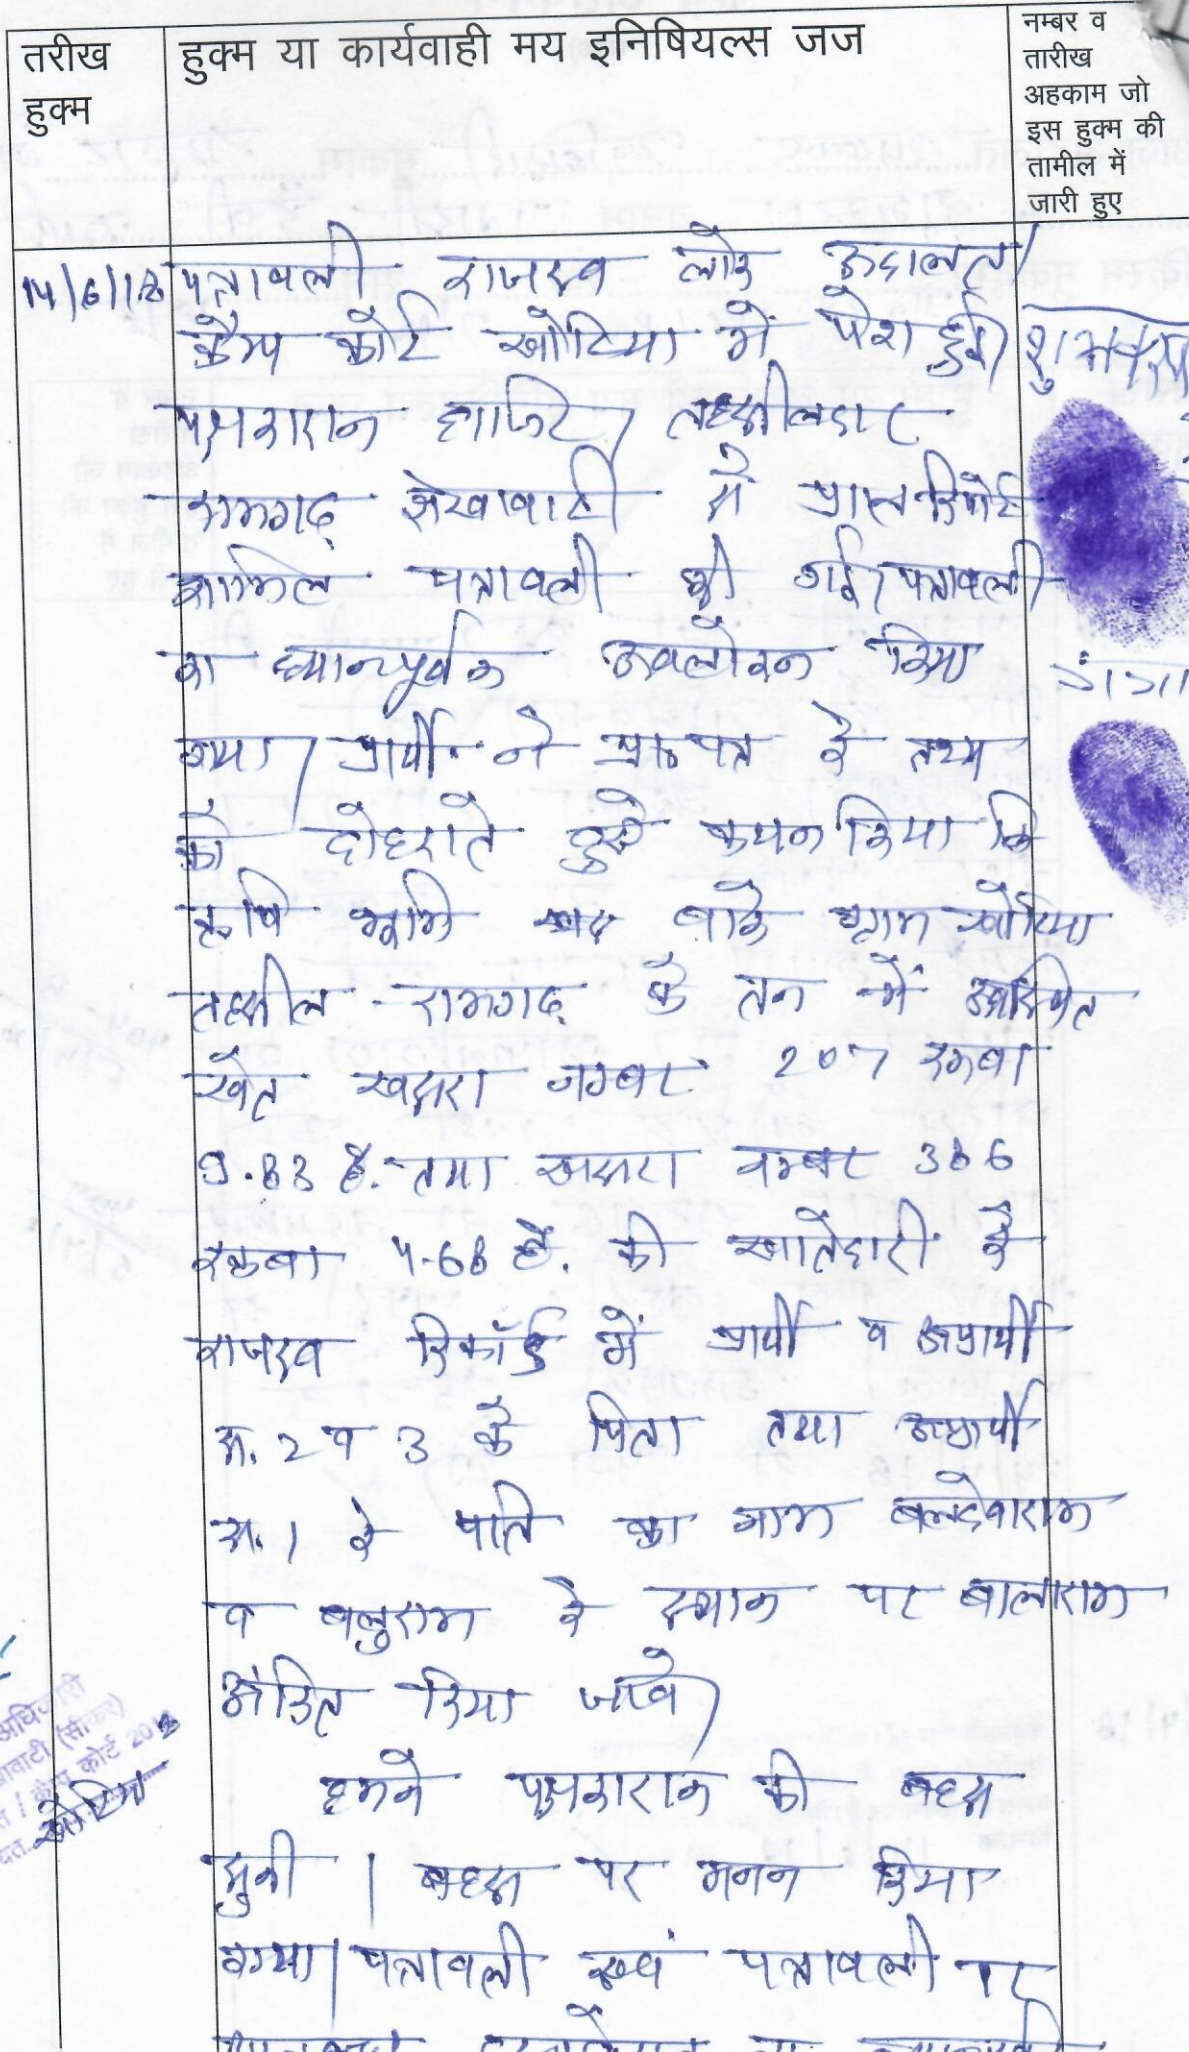 तरीख
हुक्म
हुक्म या कार्यवाही मय इनिषियल्स जज
नम्बर व
तारीख
अहकाम जो
इस हुक्म की
तामील में
जारी हुए
14/6/18 पत्रावली राजस्व लोक अदालत
कैम्प कोर्ट खोटिया में पेश हुई।
पक्षकारान हाजिर। तहसीलदार
रामगढ़ शेखावाटी से प्राप्त रिपोर्ट
शामिल पत्रावली की गई। पत्रावली
का ध्यानपूर्वक अवलोकन किया
गया। प्रार्थी ने प्रा० पत्र के तथ्य
को दोहराते हुये कथन किया कि
कृषि भूमि बाके ग्राम खोटिया
तहसील रामगढ़ के तन में अवस्थित
खेत खसरा नम्बर 207 रकबा
9.83 है. तथा खसरा नम्बर 386
रकबा 4.68 है. की खातेदारी के
राजस्व रिकॉर्ड में प्रार्थी व अप्रार्थी
स. 2 व 3 के पिता तथा अप्रार्थी
स. 1 के पति का नाम बलदेवाराम
व बलुराम के स्थान पर बालाराम
अंकित किया जावे।
हमने पक्षकारान की बहस
सुनी। बहस पर मनन किया
गया। पत्रावली एवं पत्रावली पर
गंगा
अधिकारी
(सीकर)
कैम्प कोर्ट 2018
खोटिया